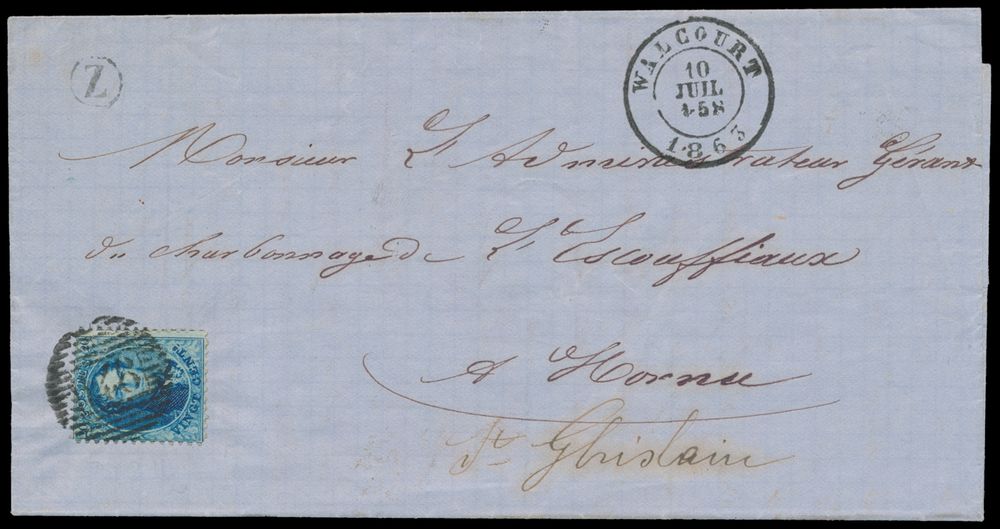 Z
WALCOURT
10
JUIL
1863
Monsieur L'Administrateur Gérant
du charbonnage de L'Escouffiaux
A Hornu
St Ghislain